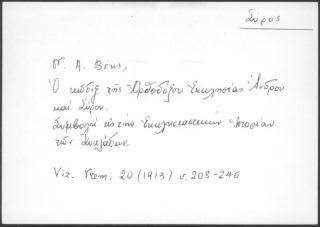 Σύρος
Ν. Α. Βέης,
Ὁ κώδιξ τῆς Ὀρθοδόξου Ἐκκλησίας Ἄνδρου
καὶ Σύρου.
Συμβολὴ εἰς τὴν Ἐκκλησιαστικὴν Ἱστορίαν
τῶν Κυκλάδων.
Viz. Vrem. 20 (1913) σ. 208-246